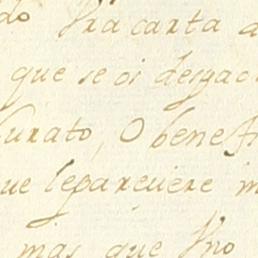 do Vra carta a
que se oi desgac
Curato, O benefi
ue lepareciere m
mas que Vno